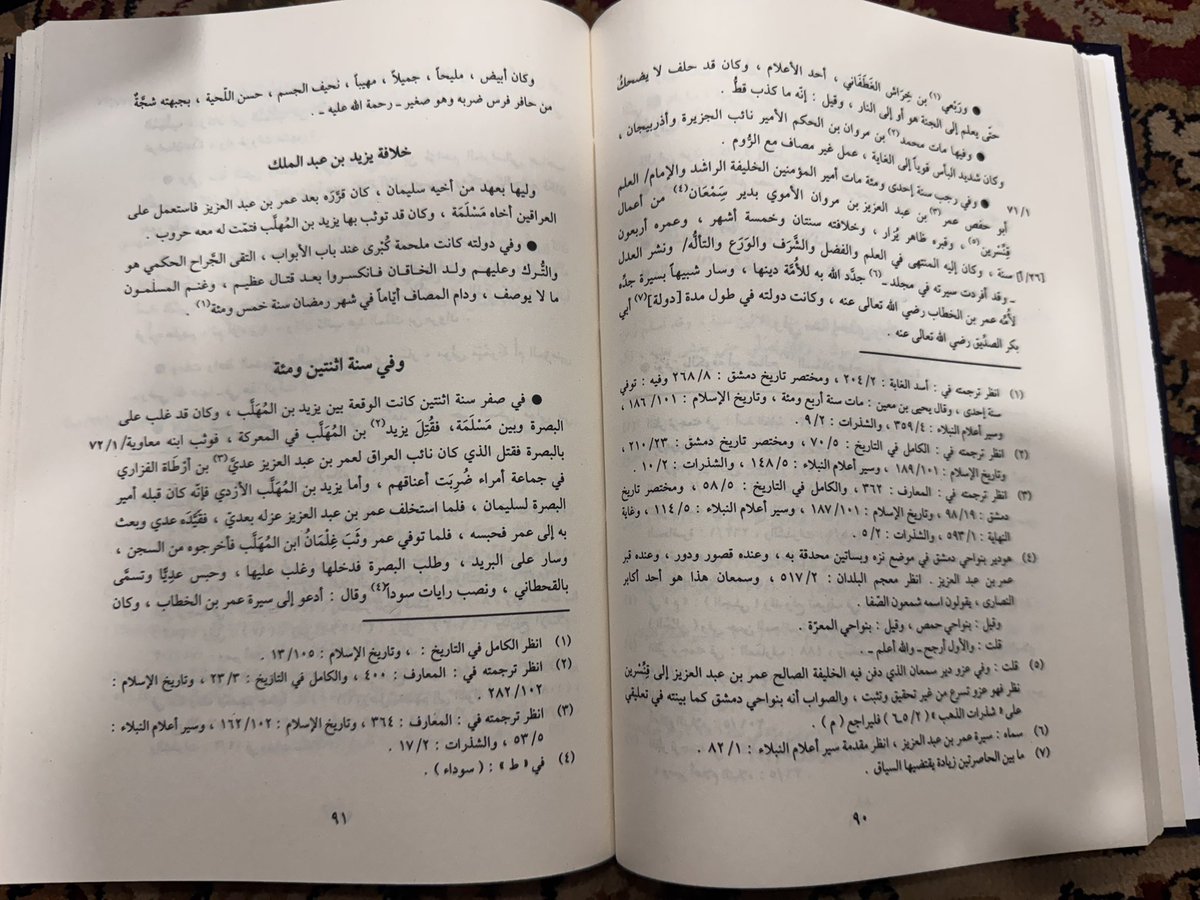 ● ورَبْعي (١) بن خِرَاش الغَطَفَاني ، أحد الأعلام ، وكان قد حلف لا يضحكُ
حتّى يعلم إلى الجنة هو أو إلى النار ، وقيل : إنّه ما كذب قطُّ .
● وفيها مات محمد(٢) بن مروان بن الحكم الأمير نائب الجزيرة وأذربيجان ،
وكان شديد البأس قوياً إلى الغاية ، عمل غير مصاف مع الرُّوم .
٧١/١ ● وفي رجب سنة إحدى ومئة مات أمير المؤمنين الخليفة الراشد والإمام/ العلم
أبو حفص عمر(٣) بن عبد العزيز بن مروان الأموي بدير سِمْعَان(٤) من أعمال
قِنَّسْرين(٥) ، وقبره ظاهر يُزار ، وخلافته سنتان وخمسة أشهر ، وعمره أربعون
[٢٦/أ] سنة ، وكان إليه المنتهى في العلم والفضل والشَّرَف والوَرَع والتألُّه/ ونشر العدل
ـ وقد أفردت سيرته في مجلد ـ(٦) جدّد الله به للأُمَّة دينها ، وسار شبيهاً بسيرة جدِّه
لأمِّه عمر بن الخطاب رضي الله تعالى عنه ، وكانت دولته في طول مدة [دولة](٧) أبي
بكر الصدِّيق رضي الله تعالى عنه .
(١) انظر ترجمته في : أسد الغابة : ٢٠٤/٢ ، ومختصر تاريخ دمشق : ٢٦٨/٨ وفيه : توفي
سنة إحدى ، وقال يحيى بن معين : مات سنة أربع ومئة ، وتاريخ الإسلام : ١٨٦/١٠١ ،
وسير أعلام النبلاء : ٣٥٩/٤ ، والشذرات : ٩/٢ .
(٢) انظر ترجمته في : الكامل في التاريخ : ٧٠/٥ ، ومختصر تاريخ دمشق : ٢١٠/٢٣ ،
وتاريخ الإسلام : ١٨٩/١٠١ ، وسير أعلام النبلاء : ١٤٨/٥ ، والشذرات : ١٠/٢ .
(٣) انظر ترجمته في : المعارف : ٣٦٢ ، والكامل في التاريخ : ٥٨/٥ ، ومختصر تاريخ
دمشق : ٩٨/١٩ ، وتاريخ الإسلام : ١٨٧/١٠١ ، وسير أعلام النبلاء : ١١٤/٥ ، وغاية
النهاية : ٥٩٣/١ ، والشذرات : ٥/٢ .
(٤) هودير بنواحي دمشق في موضع نزه وبساتين محدقة به ، وعنده قصور ودور ، وعنده قبر
عمر بن عبد العزيز . انظر معجم البلدان : ٥١٧/٢ ، وسمعان هذا هو أحد أكابر
النصارى ، يقولون اسمه شمعون الصّفا .
وقيل : بنواحي حمص ، وقيل : بنواحي المعرّة .
قلت : والأول أرجح ـ والله أعلم ـ .
(٥) قلت : وفي عزو دير سمعان الذي دفن فيه الخليفة الصالح عمر بن عبد العزيز إلى قِنَّسْرين
نظر فهو عزو تسرع من غير تحقيق وتثبت ، والصواب أنه بنواحي دمشق كما بينته في تعليقي
على « شذرات الذهب » (٦،٥/٢) فليراجع ( م ) .
(٦) سماه : سيرة عمر بن عبد العزيز ، انظر مقدمة سير أعلام النبلاء : ٨٢/١ .
(٧) ما بين الحاصرتين زيادة يقتضيها السياق .
٩٠
وكان أبيض ، مليحاً ، جميلاً ، مهيباً ، نحيف الجسم ، حسن اللّحية ، بجبهته شجَّةٌ
من حافر فرس ضربه وهو صغير ـ رحمة الله عليه ـ .
خلافة يزيد بن عبد الملك
وليها بعهد من أخيه سليمان ، كان قرَّرَه بعد عمر بن عبد العزيز فاستعمل على
العراقين أخاه مَسْلَمَة ، وكان قد توثب بها يزيد بن المُهلَّب فتمّت له معه حروب .
● وفي دولته كانت ملحمة كُبْرى عند باب الأبواب ، التقى الجَّراح الحكَمي هو
والتُّرك وعليهم ولد الخاقان فانكسروا بعد قتال عظيم ، وغنم المسلمون
ما لا يوصف ، ودام المصاف أيّاماً في شهر رمضان سنة خمس ومئة(١) .
وفي سنة اثنتين ومئة
● في صفر سنة اثنتين كانت الوقعة بين يزيد بن المُهَلَّب ، وكان قد غلب على
البصرة وبين مَسْلَمَة، فقُتِلَ يزيد(٢) بن المُهَلَّب في المعركة ، فوثب ابنه معاوية/ ٧٢/١
بالبصرة فقتل الذي كان نائب العراق لعمر بن عبد العزيز عديَّ(٣) بن أرْطَاة الفزاري
في جماعة أمراء ضُرِبَت أعناقهم ، وأما يزيد بن المُهَلَّب الأزدي فإنّه كان قبله أمير
البصرة لسليمان ، فلما استخلف عمر بن عبد العزيز عزله بعديّ ، فقَيَّدَه عدي وبعث
به إلى عمر فحبسه ، فلما توفي عمر وثَبَ غِلْمَانُ ابن المُهَلَّب فأخرجوه من السجن ،
وسار على البريد ، وطلب البصرة فدخلها وغلب عليها ، وحبس عديًّا وتسمَّى
بالقحطاني ، ونصب رايات سوداً(٤) وقال : أدعو إلى سيرة عمر بن الخطاب ، وكان
(١) انظر الكامل في التاريخ : ، وتاريخ الإسلام : ١٣/١٠٥ .
(٢) انظر ترجمته في : المعارف : ٤٠٠ ، والكامل في التاريخ : ٢٣/٣ ، وتاريخ الإسلام :
٢٨٢/١٠٢ .
(٣) انظر ترجمته في : المعارف : ٣٦٤ ، وتاريخ الإسلام : ١٦٢/١٠٢ ، وسير أعلام النبلاء :
٥٣/٥ ، والشذرات : ١٧/٢ .
(٤) في « ط » : ( سوداء ) .
٩١